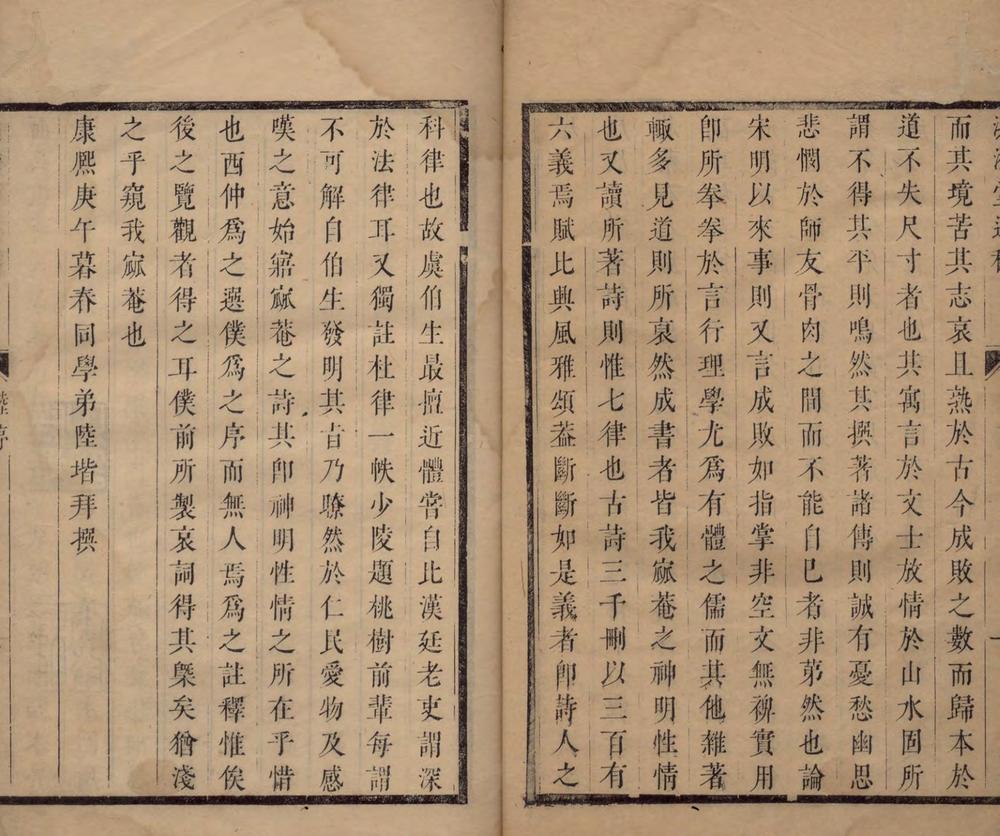 而其境苦其志哀且熟於古今成敗之數而歸本於
道不失尺寸者也其寓言於文士放情於山水固所
謂不得其平則鳴然其撰著諸傳則誠有憂愁幽思
悲憫於師友骨肉之間而不能自已者非苐然也論
宋明以來事則又言成敗如指掌非空文無裨實用
卽所拳拳於言行理學尤爲有體之儒而其他雜著
輙多見道則所裒然成書者皆我寎菴之神明性情
也又讀所著詩則惟七律也古詩三千刪以三百有
六義焉賦比興風雅頌葢斷斷如是義者卽詩人之
科律也故虞伯生最擅近體嘗自比漢廷老吏謂深
於法律耳又獨註杜律一帙少陵題桃樹前輩每謂
不可解自伯生發明其旨乃瞭然於仁民愛物及感
嘆之意始寤寎菴之詩其卽神明性情之所在乎惜
也西仲爲之選僕爲之序而無人焉爲之註釋惟俟
後之覽觀者得之耳僕前所製哀詞得其槩矣猶淺
之乎窺我寎菴也
康熙庚午暮春同學弟陸堦拜撰
陸序